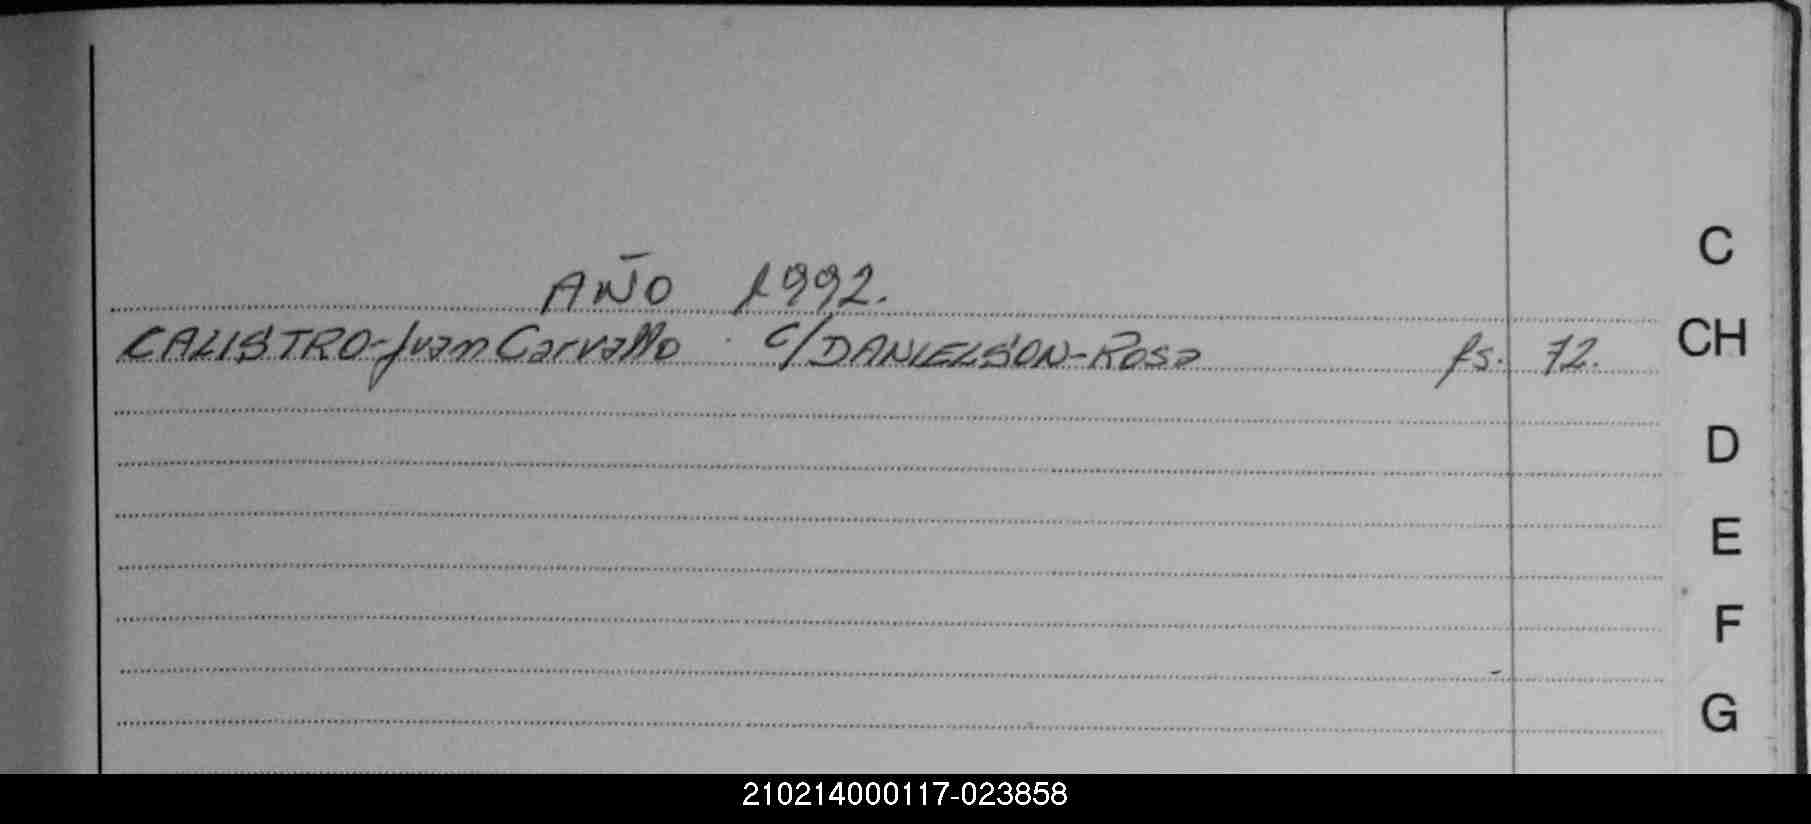 AÑO 1992.
CALISTRO-Juan Carvallo c/DANIELSON-Rosa fs. 72.
C
CH
D
E
F
G
210214000117-023858